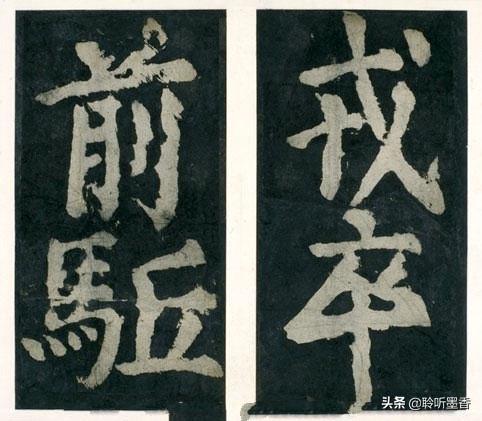 戎卒
前駈
头条 @聆听墨香